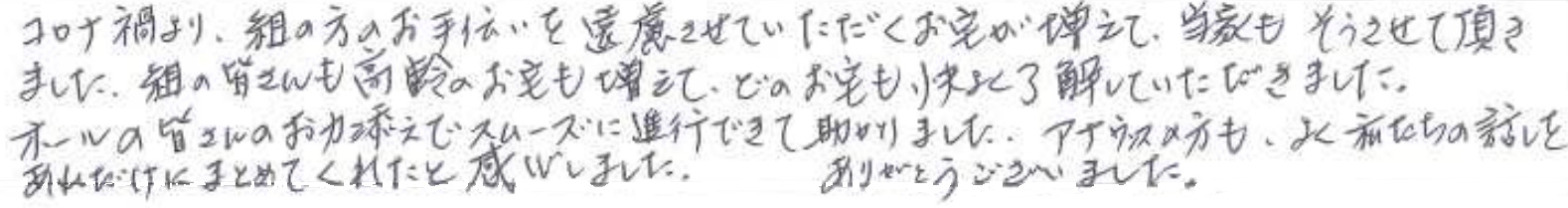 コロナ禍より、組の方のお手伝いを遠慮させていただくお宅が増えて、当家もそうさせて頂き
ました。組の皆さんも高齢のお宅も増えて、どのお宅も快よく了解していただきました。
ホールの皆さんのお力添えでスムーズに進行できて助かりました。アナウスの方も、よく私たちの話しを
あれだけにまとめてくれたと感心しました。 ありがとうございました。